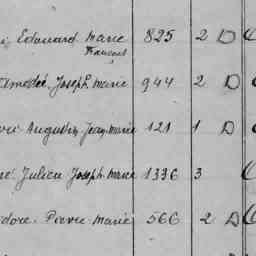 Edouard Marie 825 2 D
François
Amédée Joseph Marie 944 2 D
Augustin Jean Marie 121 1 D
Julien Joseph Marie 1336 3
Pierre Marie 566 2 D